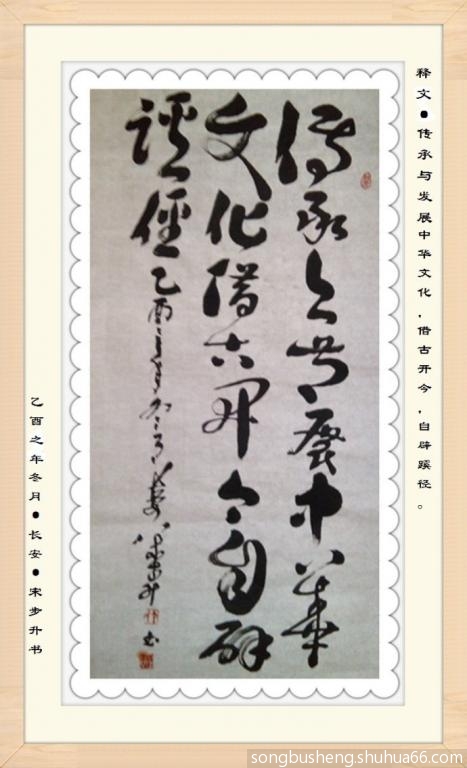 释文●传承与发展中华文化，借古开今，自辟蹊径。
传承与发展中华
文化借古开今自辟
蹊径乙酉之年冬月长安宋步升书
乙酉之年冬月●长安●宋步升书
songbusheng.shuhua66.com